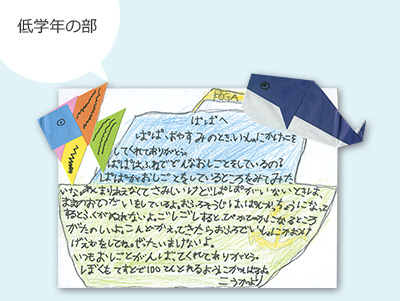 低学年の部
KOGA
ぱぱへ
ぱぱ、おやすみのとき、いっしょにかけっこを
してくれてありがとう。
ぱぱは、ふねでどんなおしごとをしているの?
ぱぱがおしごとをしているところをみてみた
いな。あんまりあえなくてさみしいけど、ぱぱがいないときは、
ままのおてつだいをしているよ。おふろそうじは、はんがつ
するとふくがぬれないよ。ごしごしするとぴかぴかになるところ
がたのしいよ。こんどかえってきたらおふろでいっしょにみずかけ
ばなしをしてね。ぜったいまけないよ。
いつもおしごとがんばってくれてありがとう。
ぼくもてすとで100てんとれるようにがんばるよ。
こうがより